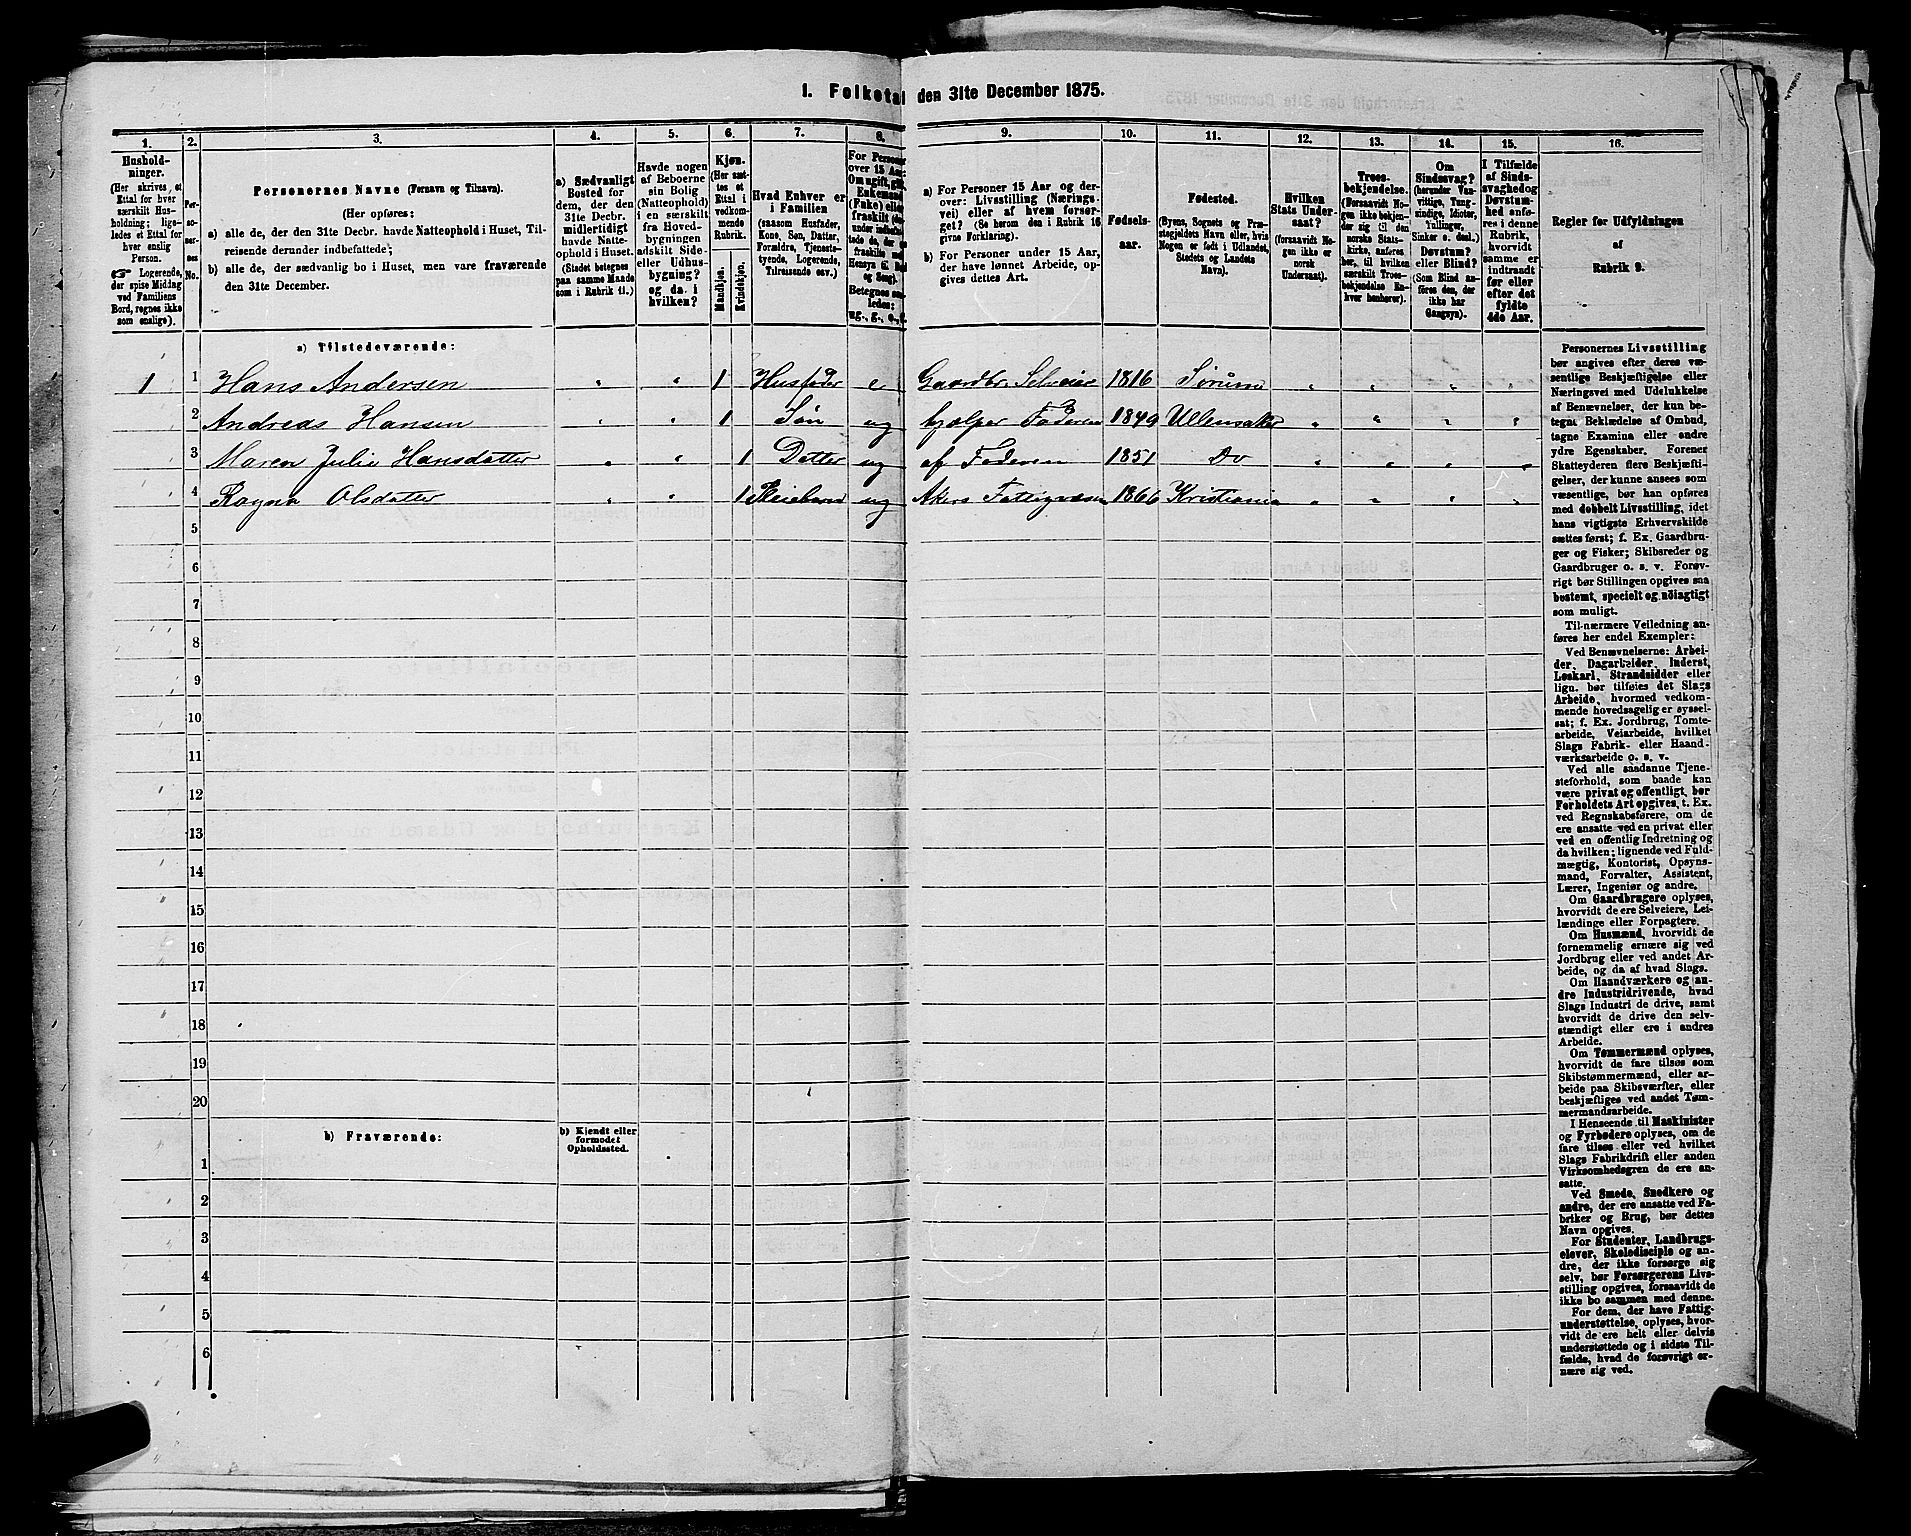 1. Folketal den 31te December 1875.
1. 2. 3. 4. 5. 6. 7. 8. 9. 10. 11. 12. 13. 14. 15. 16.
Hushold-
ninger.
(Her skrives et
Ettal for hver
særskilt Hus-
holdning; lige-
ledes et Ettal for
hver enslig
Person.
☞ Logerende,
der spise Middag
ved Familiens
Bord, regnes ikke
som enslige).
Per-
so-
ner-
nes
No.
Personernes Navne (Fornavn og Tilnavn).
(Her opføres:
a) alle de, der den 31te Decbr. havde Natteophold i Huset, Til-
reisende derunder indbefattede;
b) alle de, der sædvanlig bo i Huset, men vare fraværende
den 31te December.
a) Sædvanligt
Bosted for
dem, der den
31te Decbr.
midlertidigt
havde Natte-
ophold i Huset.
(Stedet betegnes
paa samme Maade
som i Rubrik 11.)
Havde nogen
af Beboerne
sin Bolig
(Natteophold)
i en særskilt
fra Hoved-
bygningen
adskilt Side-
eller Udhus-
bygning?
og da i
hvilken?
Kjøn.
(Her sæt-
tes et
Ettal i
vedkom-
mende
Rubrik.
Mandkjøn.
Kvindekjøn.
Hvad Enhver er
i Familien
(saasom Husfader,
Kone, Søn, Datter,
Forældre, Tjeneste-
tyende, Logerende,
Tilreisende osv.)
For Personer
over 15 Aar:
Om ugift, gift,
Enkemand
(Enke) eller
fraskilt
Betegnes saa-
ledes:
ug., g., e., f.
a) For Personer 15 Aar og der-
over: Livsstilling (Nærings-
vei) eller af hvem forsør-
get? (Se herom den i Rubrik 16
givne Forklaring).
b) For Personer under 15 Aar,
der have lønnet Arbeide, op-
gives dettes Art.
Fødsels-
aar.
Fødested.
(Byens, Sognets og Præ-
stegjeldets Navn eller, hvis
Nogen er født i Udlandet,
Stedets og Landets
Navn).
Hvilken
Stats Under-
saat?
(forsaavidt No-
gen ikke er
norsk
Undersaat).
Troes-
bekjendelse.
(Forsaavidt No-
gen ikke bekjen-
der sig til den
norske Stats-
kirke, anføres
her, til hvilken
særskilt Troes-
bekjendelse En-
hver henhører).
Om
Sindssvag?
(herunder Van-
vittige, Tung-
sindige, Idioter,
Tullinger,
Sinker o. desl.)
Døvstum?
eller Blind?
(Som Blind an-
føres den, der
ikke har
Gangsyn).
I Tilfælde
af Sinds-
svaghed og
Døvstum-
hed anfø-
res i denne
Rubrik,
hvorvidt
samme er
indtraadt
før eller
efter det
fyldte
4de Aar.
Regler for Udfyldningen
af
Rubrik 9.
a) Tilstedeværende:
1 1 Hans Andersen " " 1 Husfader e Gaardbr. Selveier 1816 Sørum " " " "
2 Andreas Hansen " " 1 Søn ug hjælper Faderen 1849 Ullensaker " " " "
3 Maren Julie Hansdatter " " 1 Datter ug af Faderen 1851 Do " " " "
4 Ragna Olsdatter " " 1 Pleiebarn ug Akers Fattigvæsen 1866 Kristiania " " " "
5
6
7
8
9
10
11
12
13
14
15
16
17
18
19
20
b) Fraværende:
b) Kjendt eller
formodet
Opholdssted.
1
2
3
4
5
6
Personernes Livsstilling
bør angives efter deres væ-
sentlige Beskjæftigelse eller
Næringsvei med Udelukkelse
af Benævnelser, der kun be-
tegne Beklædelse af Ombud,
tagne Examina eller andre
ydre Egenskaber. Forener
Skatteyderen flere Beskjæfti-
gelser, der kunne ansees som
væsentlige, bør han opføres
med dobbelt Livsstilling, idet
hans vigtigste Erhvervskilde
sættes først; f. Ex. Gaardbru-
ger og Fisker; Skibsreder og
Gaardbruger o. s. v. Forøv-
rigt bør Stillingen opgives saa
bestemt, specielt og nöiagtigt
som muligt.
Til nærmere Veiledning an-
føres her endel Exempler:
Ved Benævnelserne: Arbei-
der, Dagarbeider, Inderst,
Løskarl, Strandsidder eller
lign. bør tilføies det Slags
Arbeide, hvormed vedkom-
mende hovedsagelig er syssel-
sat; f. Ex. Jordbrug, Tomte-
arbeide, Veiarbeide, hvilket
Slags Fabrik- eller Haand-
værksarbeide o. s. v.
Ved alle saadanne Tjene-
steforhold, som baade kan
være privat og offentligt, bør
Forholdets Art opgives, t. Ex.
ved Regnskabsførere, om de
ere ansatte ved en privat eller
ved en offentlig Indretning og
da hvilken; lignende ved Fuld-
mægtig, Kontorist, Opsyns-
mand, Forvalter, Assistent,
Lærer, Ingeniør og andre.
Om Gaardbrugere oplyses,
hvorvidt de ere Selveiere, Lei-
lændinge eller Forpagtere.
Om Husmænd, hvorvidt de
fornemmelig ernære sig ved
Jordbrug eller ved andet Ar-
beide, og da af hvad Slags.
Om Haandværkere og an-
dre Industridrivende, hvad
Slags Industri de drive, samt
hvorvidt de drive den selv-
stændigt eller ere i andres
Arbeide.
Om Tømmermænd oplyses,
hvorvidt de fare tilsøs som
Skibstømmermænd, eller ar-
beide paa Skibsværfter, eller
beskjæftiges ved andet Tøm-
mermandsarbeide.
I Henseende til Maskinister
og Fyrbødere oplyses, om de
fare tilsøs eller ved hvilket
Slags Fabrikdrift eller anden
Virksomhedsgren de ere an-
satte.
Ved Smede, Snedkere og
andre, der ere ansatte ved Fa-
briker og Brug, bør dettes
Navn opgives.
For Studenter, Landbrugs-
elever, Skoledisciple og an-
dre, der ikke forsørge sig
selv, bør Forsørgerens Livs-
stilling opgives, forsaavidt de
ikke bo sammen med denne.
For dem, der have Fattig-
understøttelse, oplyses, hvor-
vidt de ere helt eller delvis
understøttede og i sidste Til-
fælde, hvad de forøvrigt er-
nære sig ved.